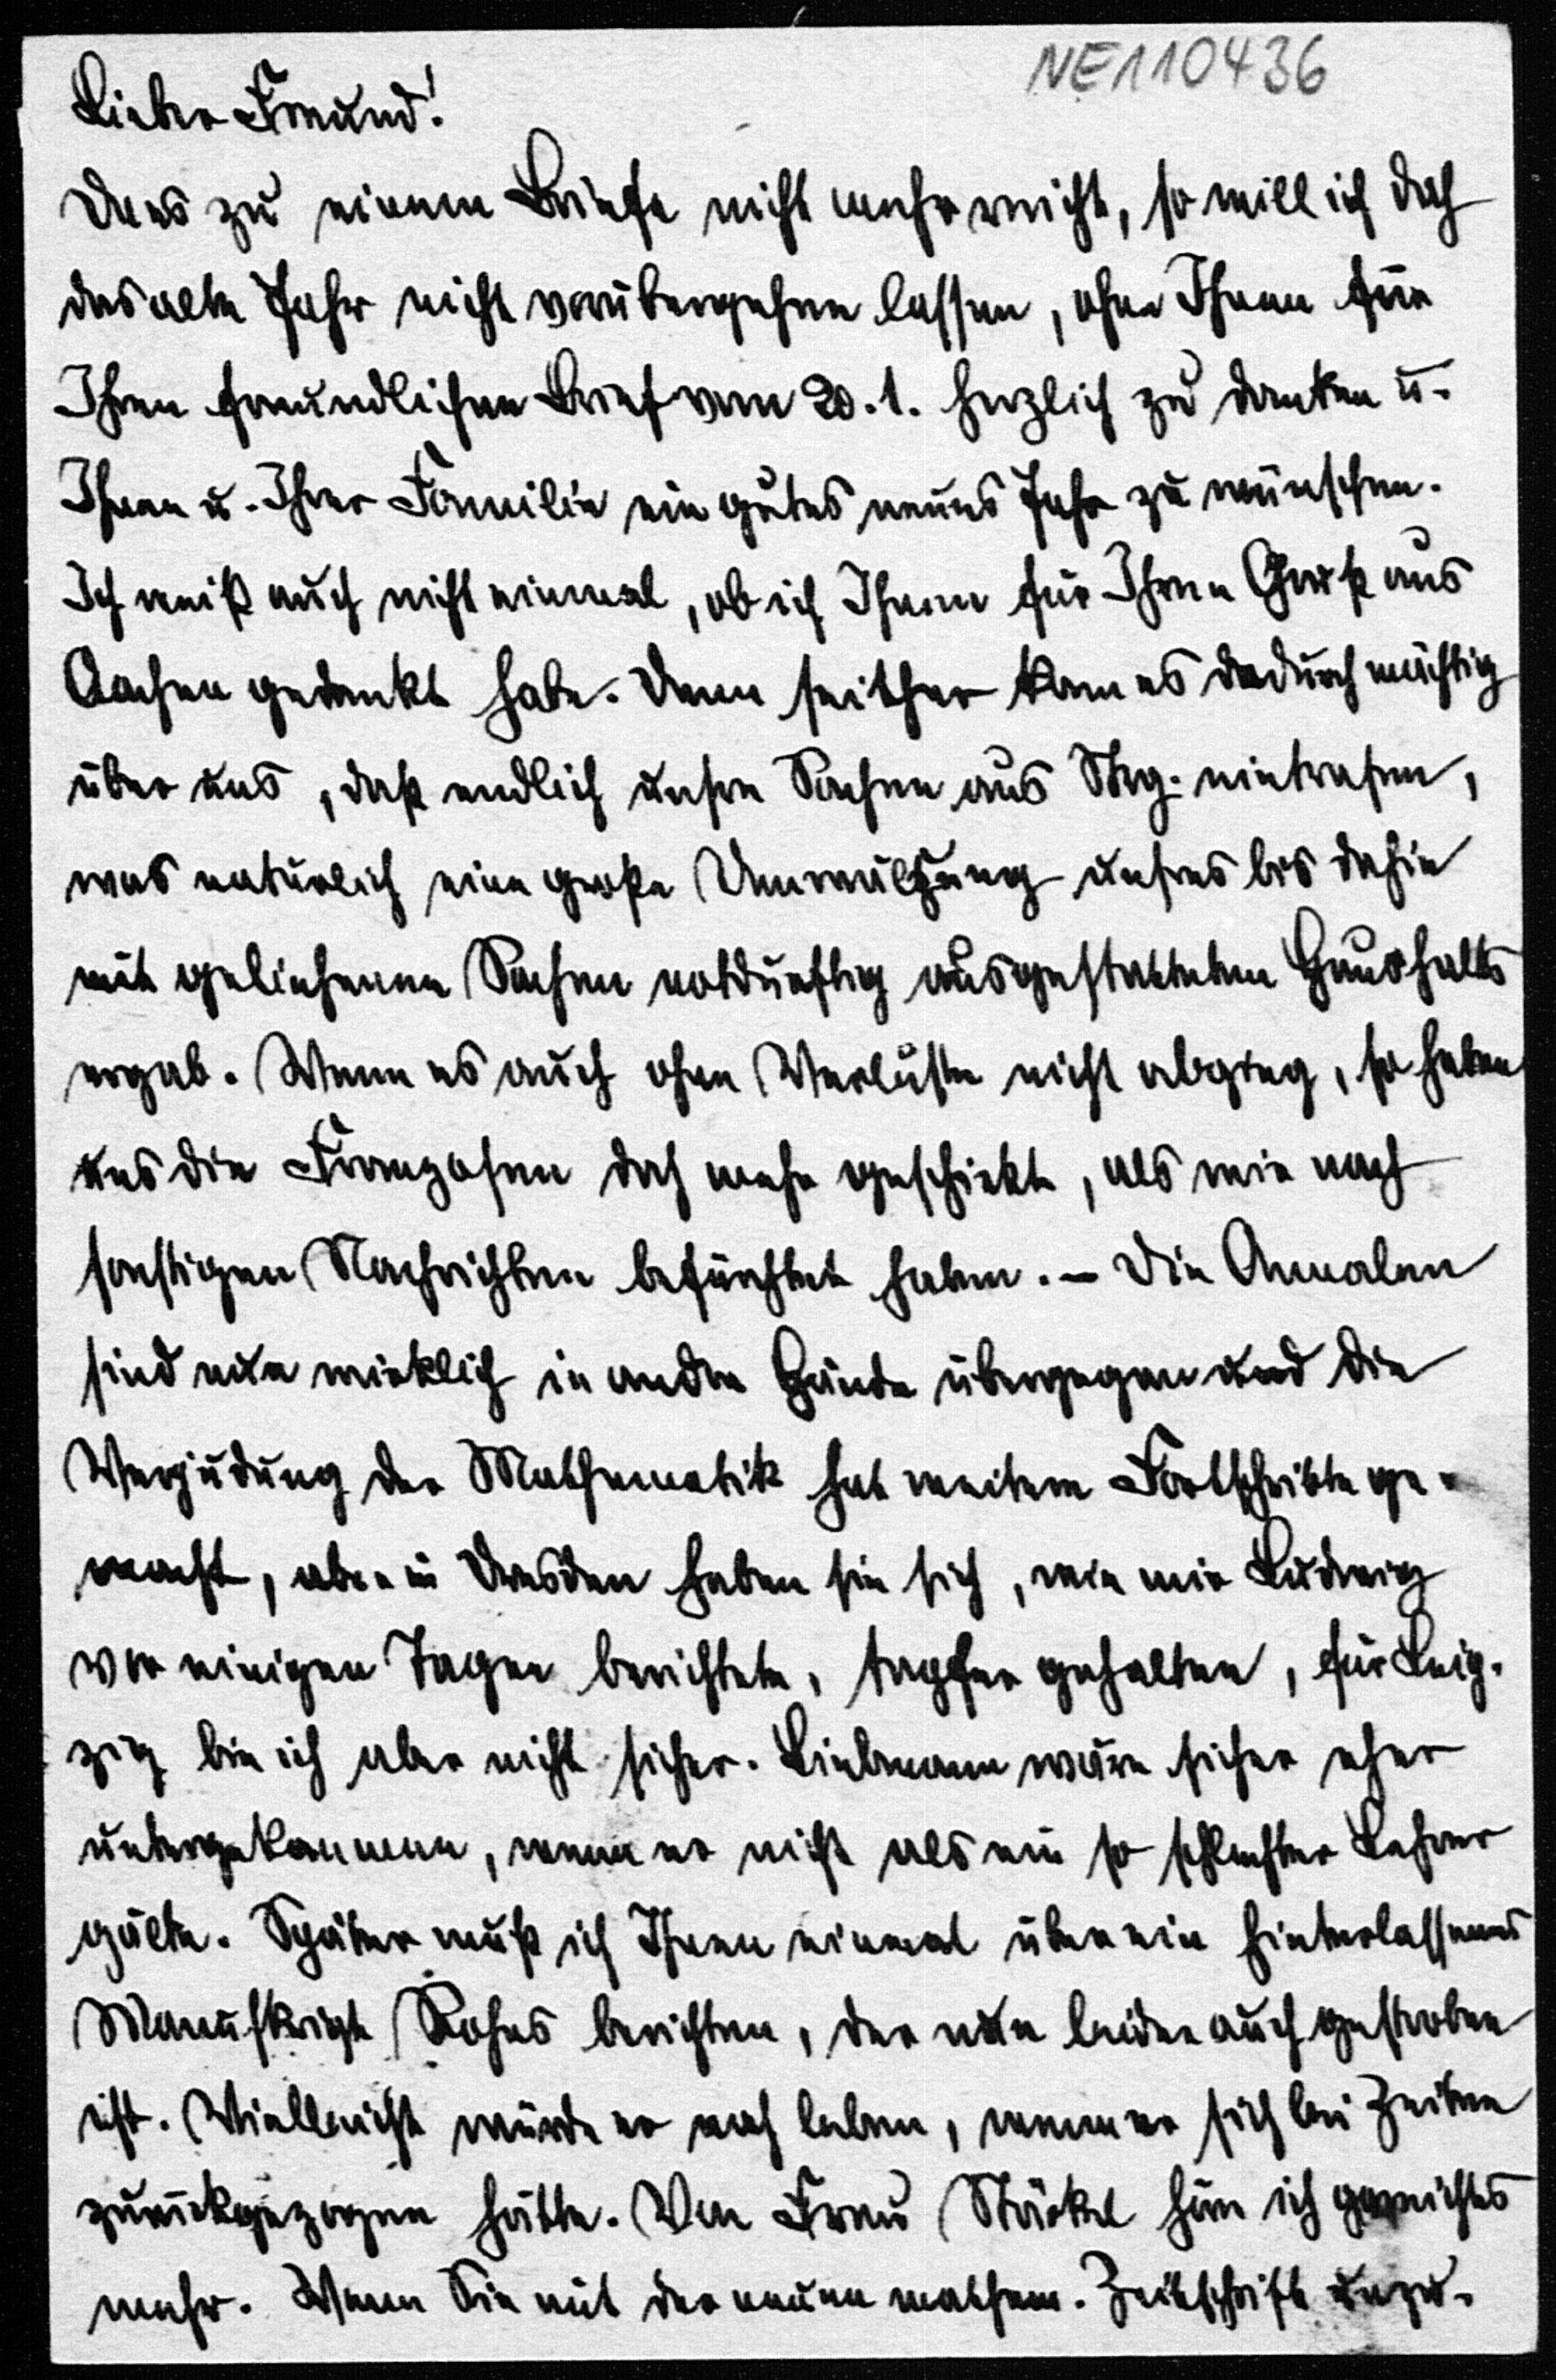 NE110436
Lieber Freund!
Da es zu einem Briefe nicht mehr reicht, so will ich doch
das alte Jahr nicht vorübergehen lassen, ohne Ihnen für
Ihren freundlichen Brief vom 20.1. herzlich zu danken u.
Ihnen u. Ihrer Familie ein gutes neues Jahr zu wünschen.
Ich weiß auch nicht einmal, ob ich Ihnen für Ihren Gruß aus
Aachen gedankt habe. Denn seither kam es dadurch mächtig
über uns, daß endlich unsre Sachen aus Strg. eintrafen,
was natürlich eine große Umwälzung unsres bis dahin
mit geliehenen Sachen notdürftig ausgestatteten Haushalts
ergab. Wenn es auch ohne Verluste nicht abging, so haben
uns die Franzosen doch mehr geschickt, als wir nach
sonstigen Nachrichten befürchtet haben. – Die Annalen
sind nun wirklich in andre Hände übergegan und die
Verjudung der Mathematik hat weitere Fortschritte ge-
macht, aber in Dresden haben sie sich, wie mir Ludwig
vor einigen Tagen berichtete, tapfer gehalten, für Leip-
zig bin ich aber nicht sicher. Liebmann wäre sicher eher
untergekommen, wenn er nicht als ein so schlechter Lehrer
gälte. Später muß ich Ihnen einmal über ein hinterlassenes
Manuskript Rohns berichten, der nun leider auch gestorben
ist. Vielleicht würde er noch leben, wenn er sich bei Zeiten
zurückgezogen hätte. Von Frau Stäckel höre ich garnichts
mehr. Wenn Sie mit der neuen mathem. Zeitschrift